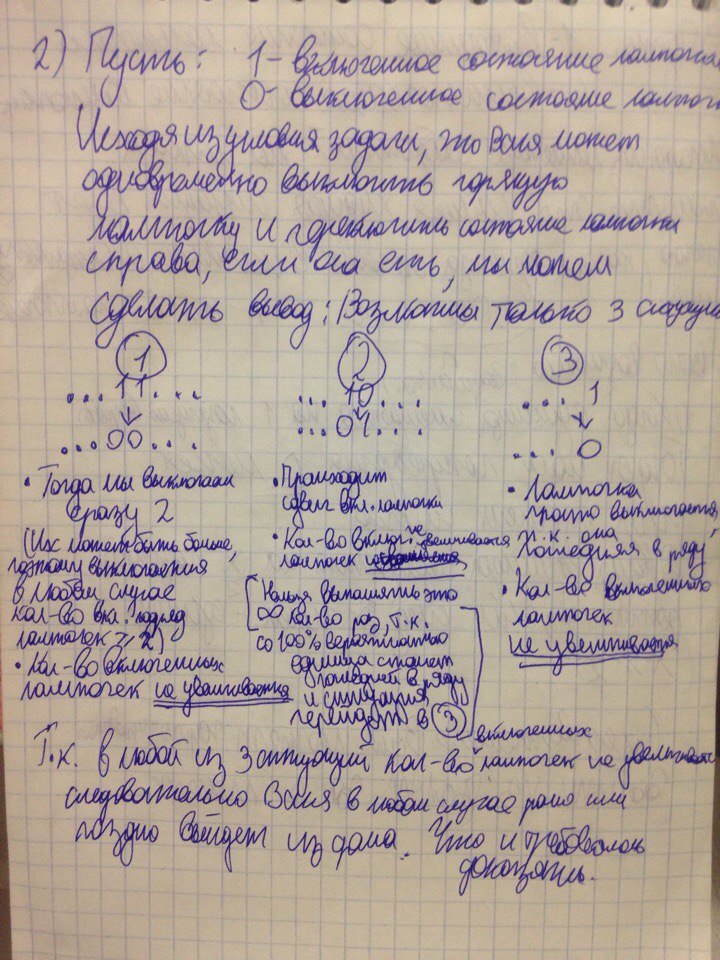 2) Пусть: 1 - включенное состояние лампочки
0 - выключенное состояние лампоч
Исходя из условия задачи, что Вася может
одновременно выключить горящую
лампочку и переключить состояние лампочки
справа, если она есть, мы можем
сделать вывод: Возможны только 3 ситуации
1
...11...
...00...
• Тогда мы выключаем
сразу 2
(Их может быть больше,
поэтому выключения
в любом случае
кол-во вкл. подряд
лампочек ≥ 2)
• Кол-во включенных
лампочек не увеличивается
2
...10...
...01...
• Происходит
сдвиг вкл. лампочки
• Кол-во включ. не увеличивается
лампочек
[Нельзя выполнять это
∞ кол-во раз, т.к.
со 100% вероятностью
единица станет
последней в ряду
и ситуация
перейдёт в 3]
3
... 1
... 0
• Лампочка
просто выключается,
т.к. она
последняя в ряду
• Кол-во включенных
лампочек
не увеличивается
Т.к. в любой из 3 ситуаций кол-во включенных лампочек не увеличивается
следовательно Вася в любом случае рано или
поздно выйдет из дома. Что и требовалось
доказать.